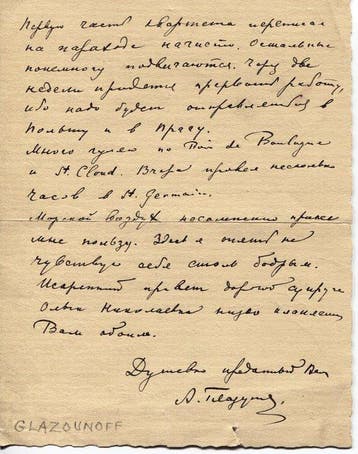 Первую часть квартета переписал
на пароходе начисто. Остальные
понемногу подвигаются. Через две
недели придется прервать работу,
ибо надо будет отправляться в
Польшу и в Прагу.
Много гуляю по Bois de Boulogne
и St. Cloud. Вчера провел несколько
часов в St. Germain.
Морской воздух несомненно принес
мне пользу. Здесь я опять не
чувствую себя столь бодрым.
Искренний привет дорогой супруге
Ольга Николаевна низко кланяется
Вам обоим.
Душевно преданный Вам
А. Глазунов.
GLAZOUNOFF